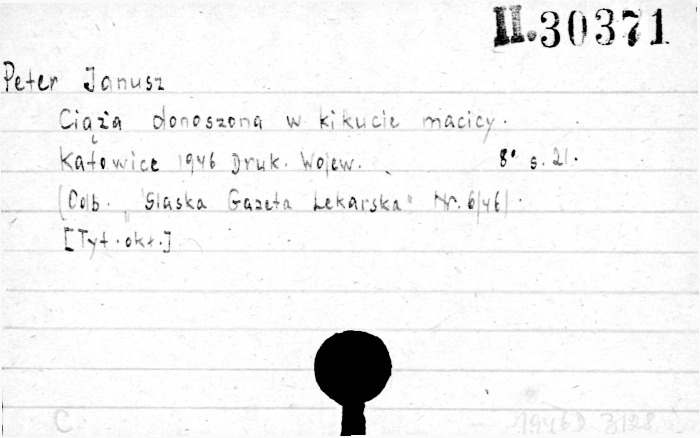 II.30371
Peter Janusz
Ciąża donoszona w kikucie macicy.
Katowice 1946 Druk. Wojew. 8° s. 21.
(Odb. "Śląska Gazeta Lekarska" Nr. 6/46).
[Tyt. okł.]
C 1946D 3128